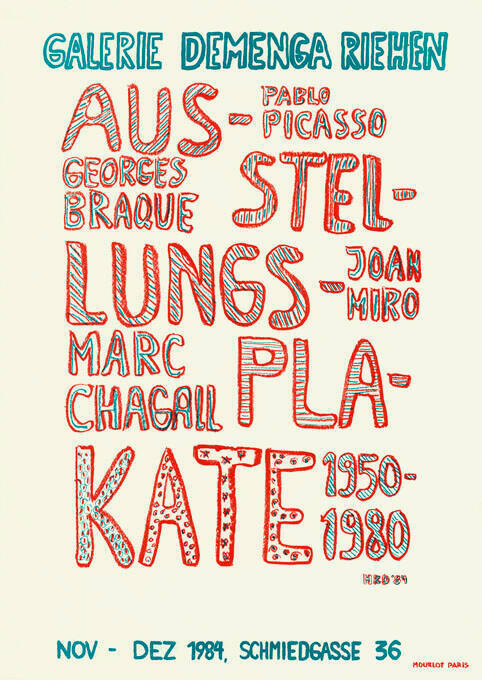 GALERIE DEMENGA RIEHEN
AUS-
PABLO
PICASSO
GEORGES
BRAQUE
STEL-
LUNGS-
JOAN
MIRO
MARC
CHAGALL
PLA-
KATE
1950-
1980
HRD'84
NOV - DEZ 1984, SCHMIEDGASSE 36
MOURLOT PARIS